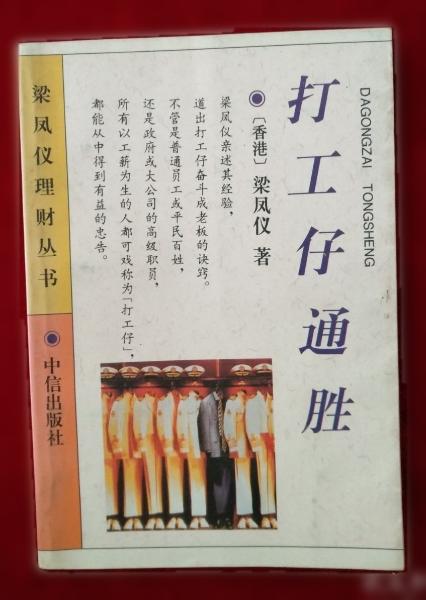 打工仔通胜
DAGONGZAI TONGSHENG
〔香港〕梁凤仪 著
梁凤仪亲述其经验，
道出打工仔奋斗成老板的诀窍。
不管是普通员工或平民百姓，
还是政府或大公司的高级职员，
所有以工薪为生的人都可戏称为“打工仔”，
都能从中得到有益的忠告。
梁凤仪理财丛书
中信出版社